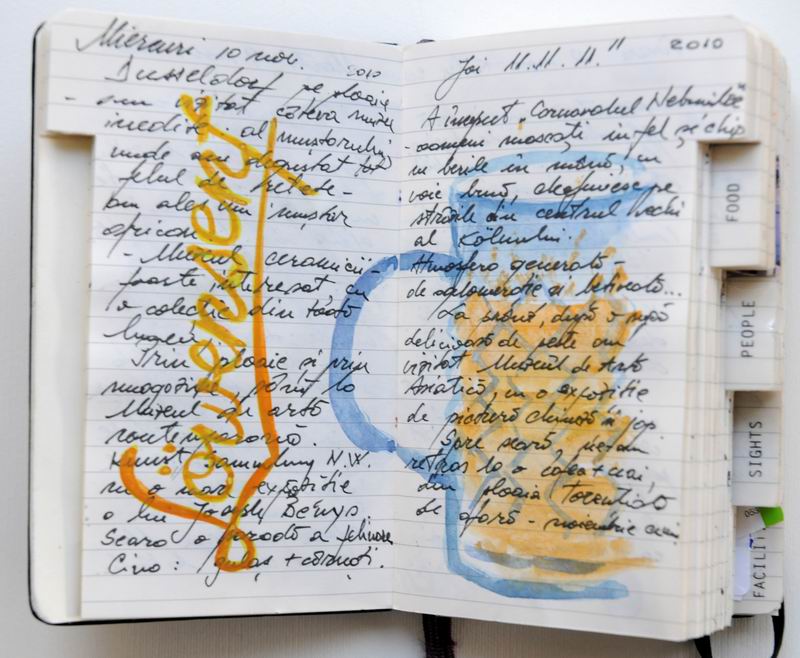 Miercuri 10 nov. 2010
Dusseldorf pe ploaie
- am vizitat câteva muzee
inedite. al muștarului
unde am degustat tot
felul de rețete -
am ales un muștar
african
- Muzeul ceramicii -
foarte interesat, cu
o colecție din toată
lumea.
Prin ploaie și prin
magazine până la
Muzeul de artă
contemporană.
Kunst Sammlung N.W.
cu o mare expoziție
a lui Joseph Beuys
Seara o paradă a
Cina: gulaș + cârnați.
Souvenser
Joi 11.11.11." 2010
A început „Carnavalul Nebunilor"
- oameni mascați în fel și chip
cu berile în mână, cu
voie bună,
străzile din centrul vechi
al Kölnului.
Atmosferă generală -
de aglomerație și
La prânz, după o masă
delicioasă de pește am
vizitat Muzeul de Artă
Asiatică, cu o expoziție
de pictură chineză și jap.
Spre seară, ne-am
retras la o cafea + ceai,
din ploaia torențială
de afară - noiembrie
FOOD
PEOPLE
SIGHTS
FACILITI